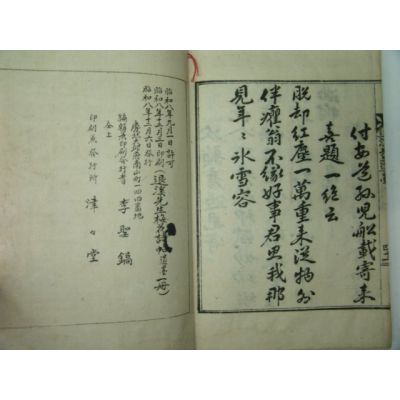 付安道孫兒船載寄來
喜題一絶云
脫却紅塵一萬重來從物外
伴癯翁不緣好事君思我那
見年〻氷雪容
昭和八年九月一日許可
昭和八年十二月三日印刷(退溪先生梅花詩 一冊)
昭和八年十二月六日發行
慶北大邱府南山町一四四番地
編輯兼印刷發行者 李聖鎬
仝上
印刷兼發行所 津々堂